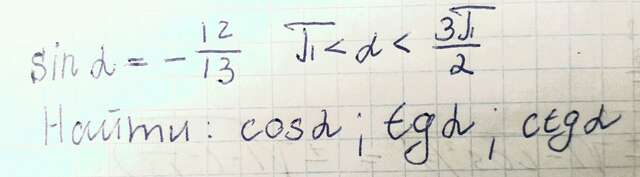 sin α = - 12/13 π < α < 3π/2
Найти: cos α; tg α; ctg α